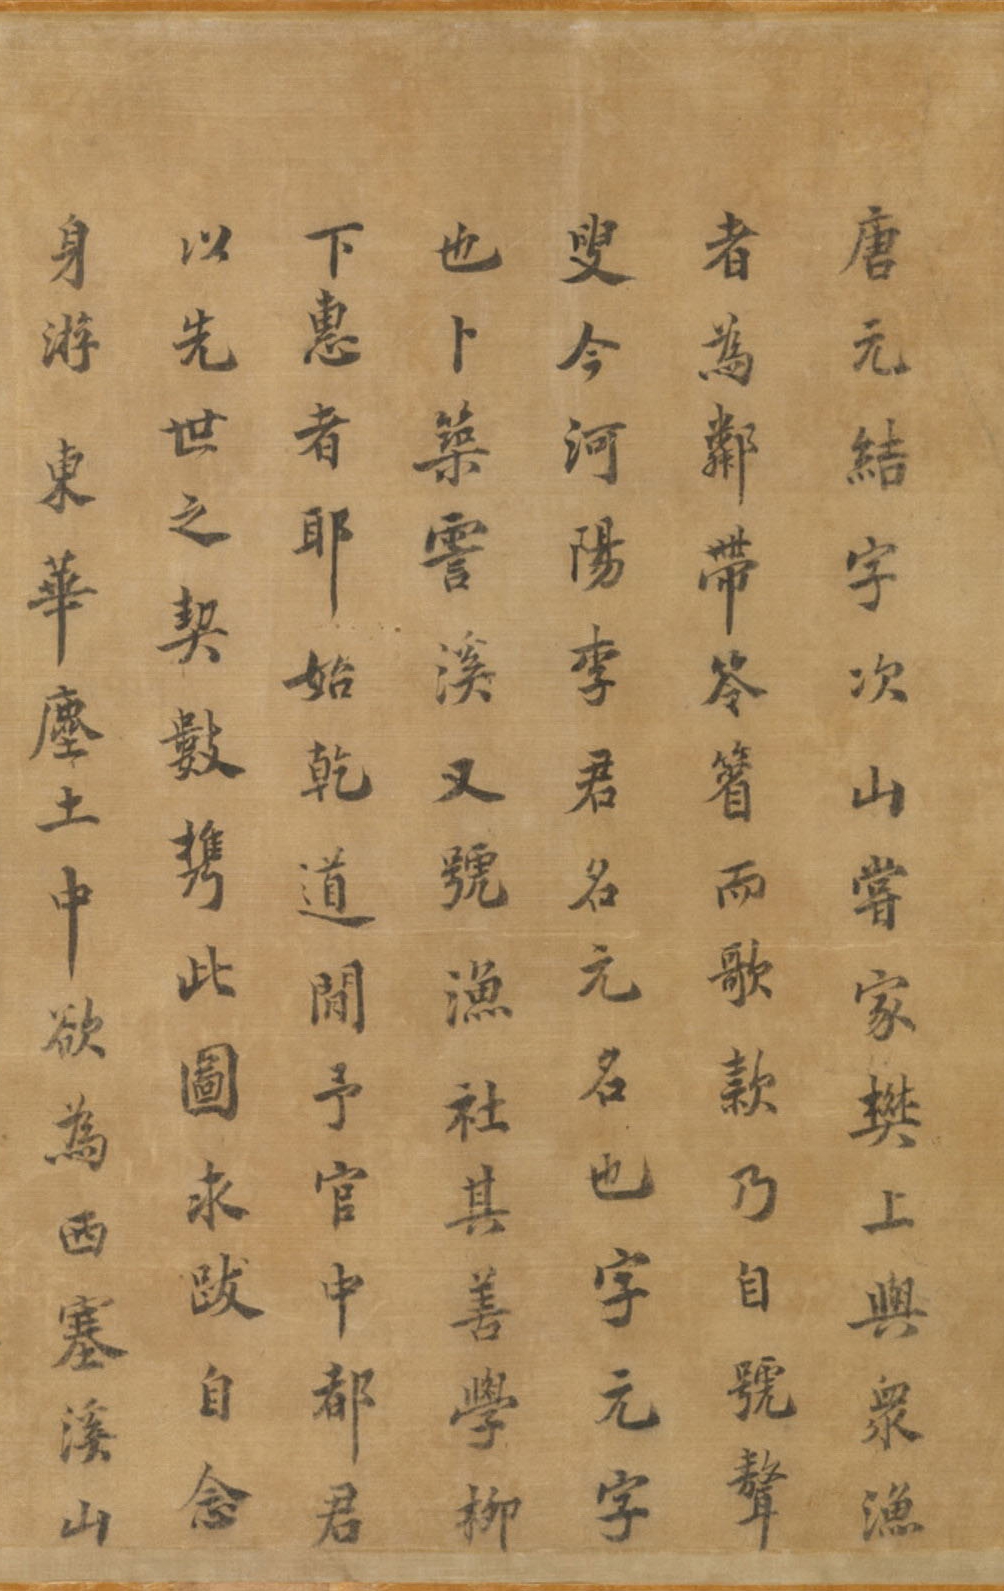 唐元結字次山嘗家樊上與衆漁
者為鄰帶笭箵而歌欵乃自號聱
叟今河陽李君名元名也字元字
也卜築霅溪又號漁社其善學柳
下惠者耶始乾道間予官中都君
以先世之契數携此圖求跋自念
身游東華塵土中欲為西塞溪山